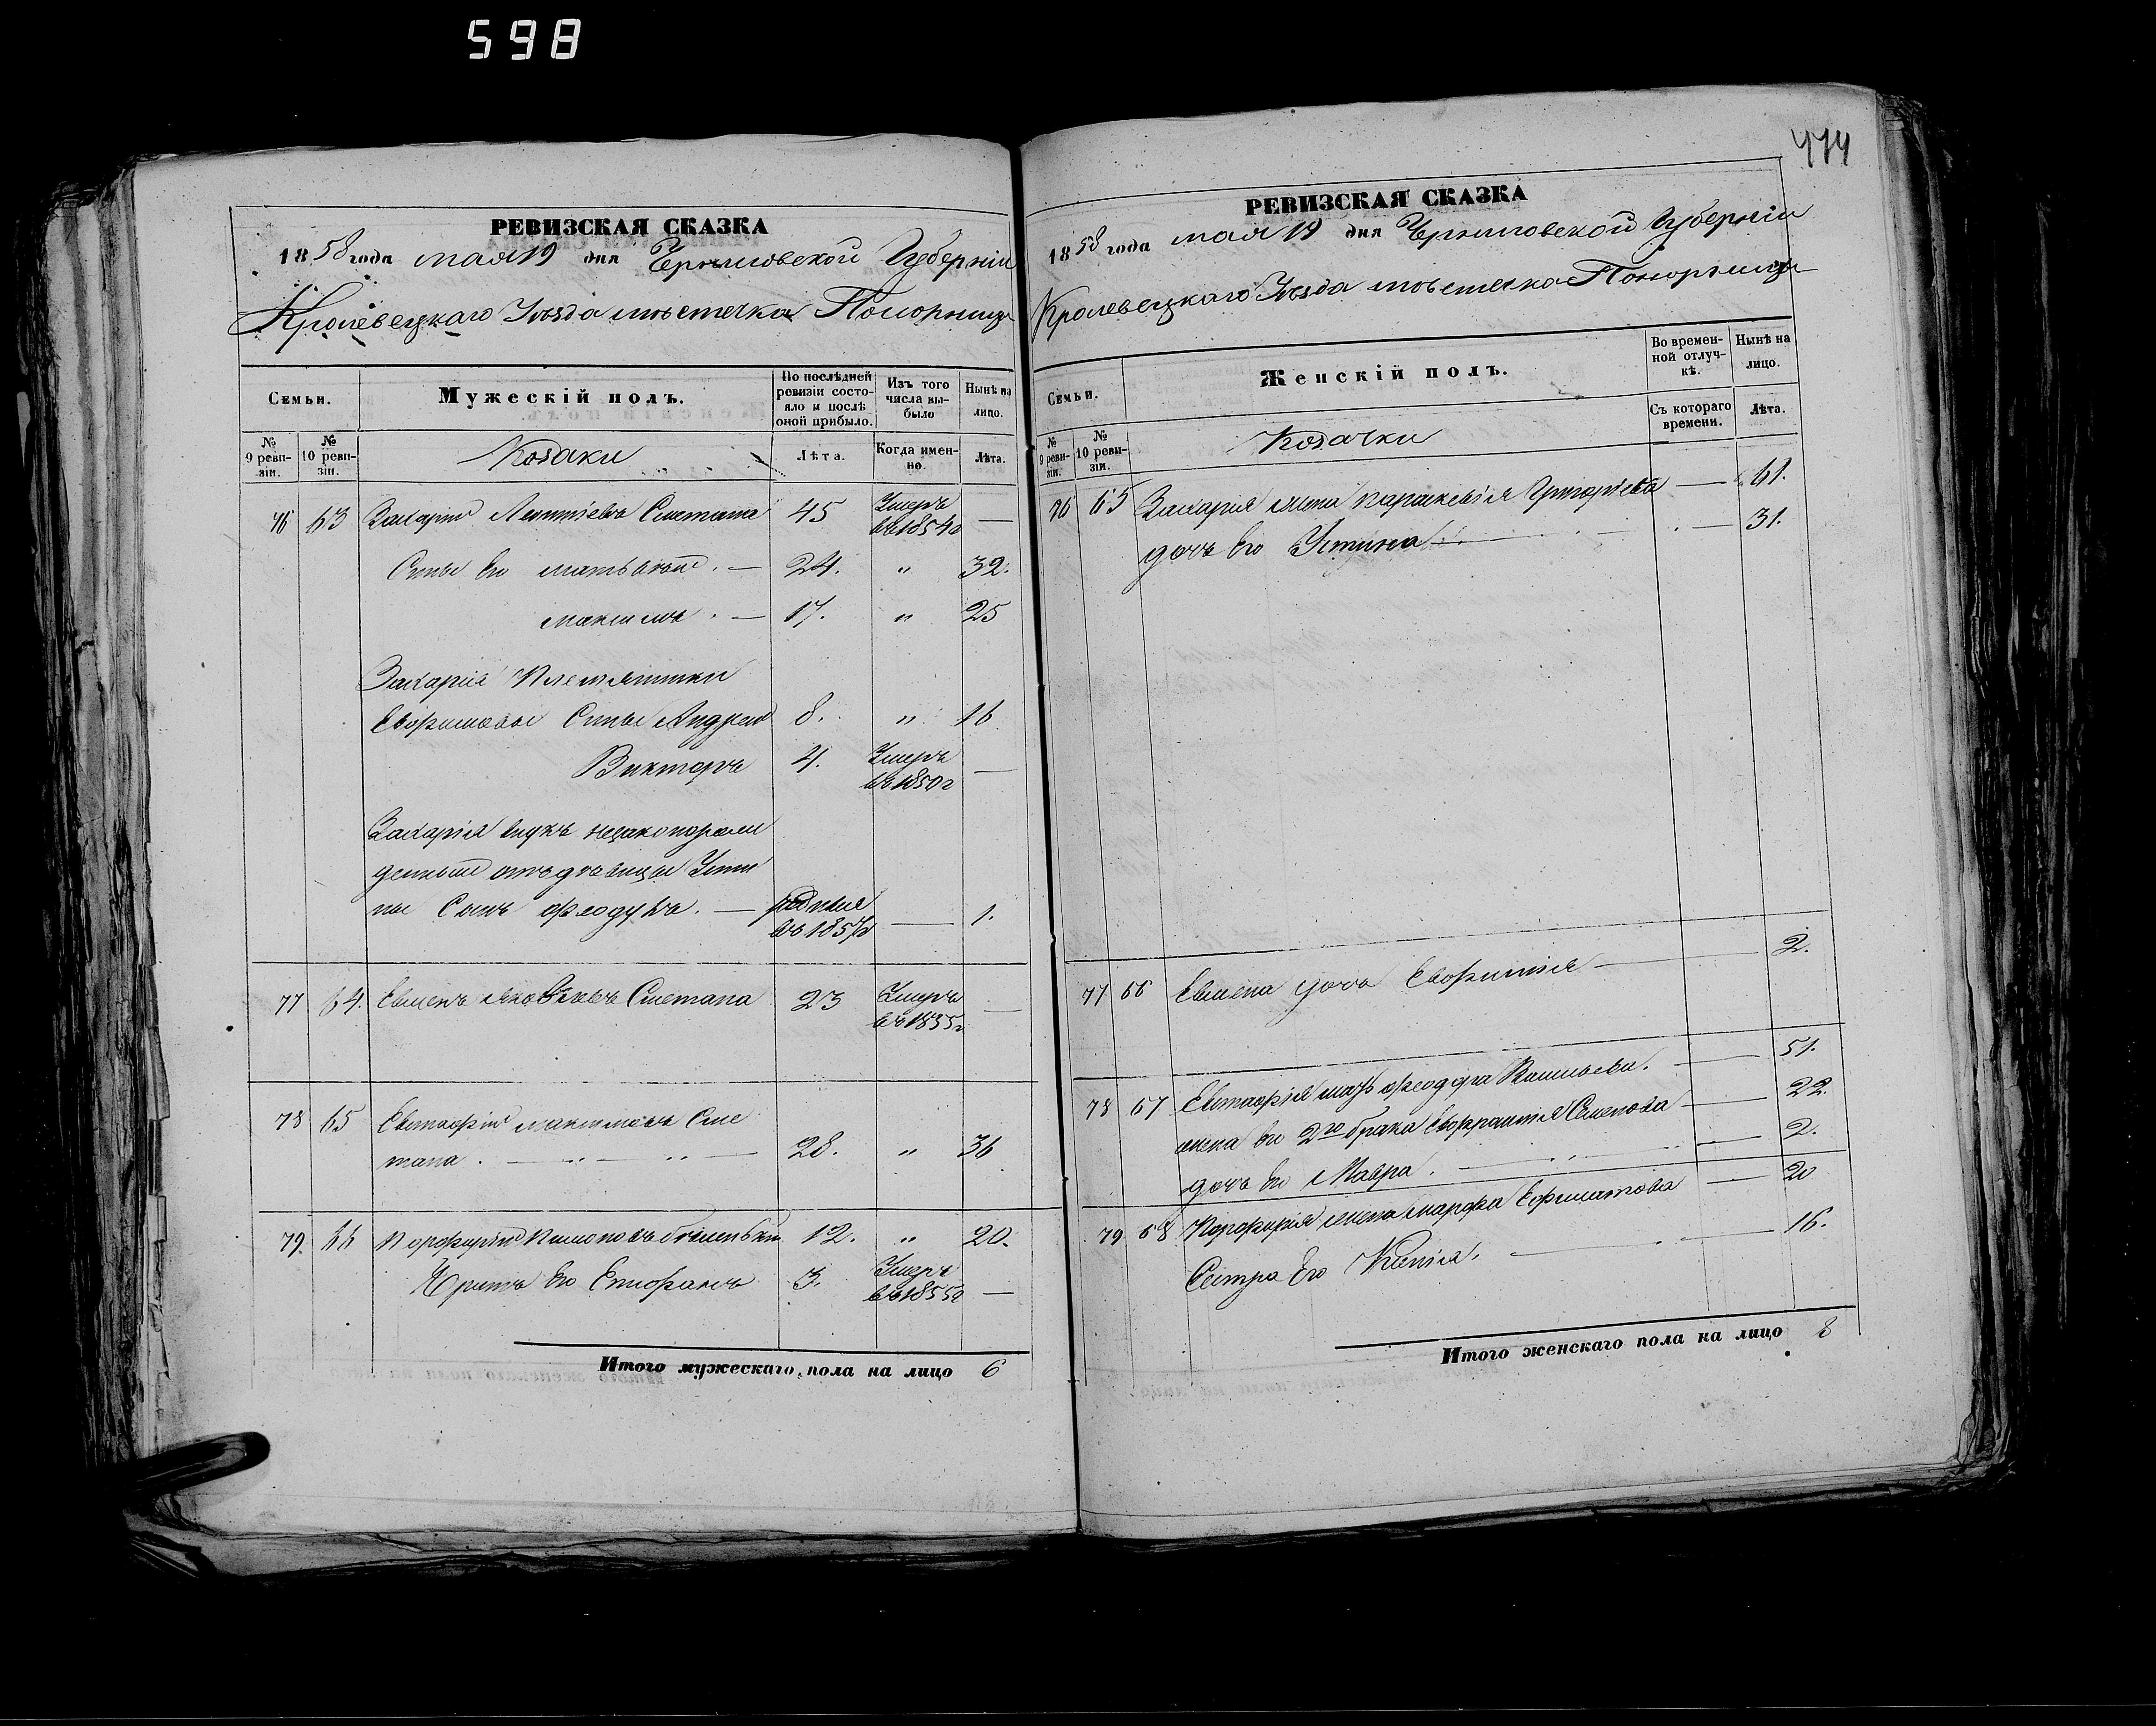 598
474
РЕВИЗСКАЯ СКАЗКА
1858 года мая 19 дня Черниговской Губерніи
Кролевецкаго Уѣзда мѣстечка Понорницы
Семьи.
Мужескій полъ.
По послѣдней ревизіи состояло и послѣ оной прибыло.
Изъ того числа выбыло
Нынѣ на лицо.
№ 9 ревизіи.
№ 10 ревизіи.
Козаки
Лѣта.
Когда именно.
Лѣта.
76 63 Захарій Леонтіевъ Сметана 45 Умеръ въ 1854 г —
Сыны его Матвѣй . — 24. " 32.
Максимъ . — 17. " 25
Захарія племянники
Сыны Андрей 8. " 16
Викторъ 4. Умеръ въ 1850 г —
Захарія внукъ незаконорож
денный отъ дѣвицы Усти
ны Сынъ . — родился въ 1857 г — 1.
77 64. Евменъ Яковлевъ Сметана 23 Умеръ въ 1855 г —
78 65 Евстафій Максимовъ Сме
тана . — — — 28. " 36
79. 66 Порфирій 12. " 20.
Братъ его Епифанъ 3. Умеръ въ 1855 г —
Итого мужескаго пола на лицо 6
РЕВИЗСКАЯ СКАЗКА
1858 года мая 19 дня Черниговской Губерніи
Кролевецкаго Уѣзда мѣстечка Понорницы
Семьи.
Женскій полъ.
Во временной отлучкѣ.
Нынѣ на лицо.
№ 9 ревизіи.
№ 10 ревизіи.
Козачки
Съ котораго времени.
Лѣта.
76 65 Захарія жена Параскевія Григорьева — 61.
дочь его Устина — 31.
77 66 Евмена дочь Евфимія — 2.
78 67 Евстафія мать Феодора Васильева. — 51.
жена его 2го брака Евфросинія Семенова — 22.
дочь его Мавра. — 2.
79 68 Порфирія жена Марфа — 20
Сестра его Ксенія. — 16.
Итого женскаго пола на лицо 8